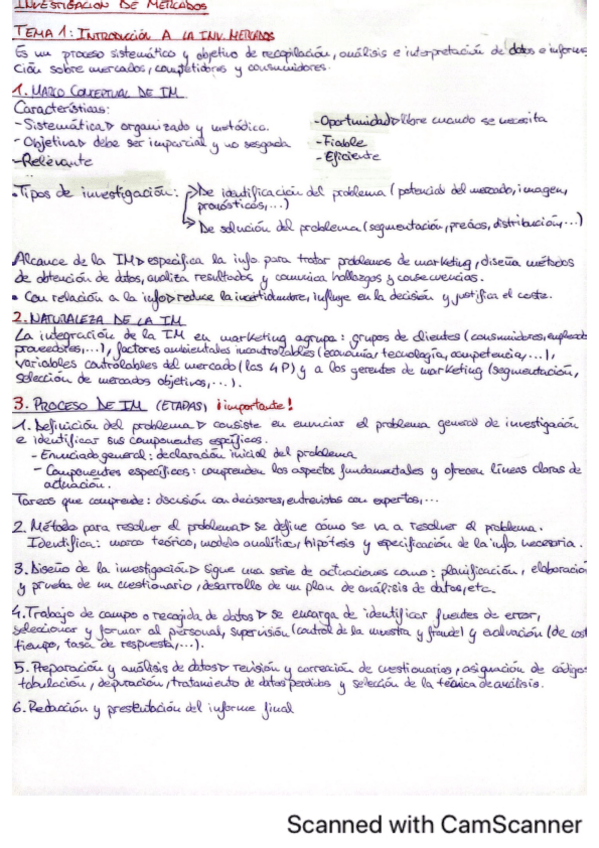 INVESTIGACIÓN DE MERCADOS
TEMA 1: INTRODUCCIÓN A LA INV. MERCADOS
Es un proceso sistemático y objetivo de recopilación, análisis e interpretación de datos e informa
ción sobre mercados, competidores y consumidores.
1. MARCO CONCEPTUAL DE IM
Características:
- Sistemática▷ organizado y metódica.
- Objetiva▷ debe ser imparcial y no sesgada
- Relevante
- Oportunidad▷ libre cuando se necesita
- Fiable
- Eficiente
• Tipos de investigación: → De identificación del problema (potencial del mercado, imagen,
pronósticos,...)
→ De solución del problema (segmentación, precios, distribución,...)
Alcance de la IM▷ especifica la info para tratar problemas de marketing, diseña métodos
de obtención de datos, analiza resultados y comunica hallazgos y consecuencias.
• Con relación a la info▷ reduce la incertidumbre, influye en la decisión y justifica el coste.
2. NATURALEZA DE LA IM
La integración de la IM en marketing agrupa: grupos de clientes (consumidores, empleado
proveedores,...), factores ambientales incontrolables (economía, tecnología, competencia,...),
variables controlables del mercado (las 4P) y a los gerentes de marketing (segmentación,
selección de mercados objetivos,...).
3. PROCESO DE IM (ETAPAS) ¡importante!
1. Definición del problema ▷ consiste en enunciar el problema general de investigación
e identificar sus componentes específicos.
- Enunciado general: declaración inicial del problema
- Componentes específicos: comprenden los aspectos fundamentales y ofrecen líneas claras de
actuación.
Tareas que comprende: discusión con decisores, entrevistas con expertos,...
2. Método para resolver el problema▷ se define cómo se va a resolver el problema.
Identifica: marco teórico, modelo analítico, hipótesis y especificación de la info. necesaria.
3. Diseño de la investigación▷ sigue una serie de actuaciones como: planificación, elaboración
y prueba de un cuestionario, desarrollo de un plan de análisis de datos, etc.
4. Trabajo de campo o recogida de datos ▷ se encarga de identificar fuentes de error,
seleccionar y formar al personal, supervisión (control de la muestra y fraude) y evaluación (de cost
tiempo, tasa de respuesta,...).
5. Preparación y análisis de datos▷ revisión y corrección de cuestionarios, asignación de código
tabulación, depuración, tratamiento de datos perdidos y selección de la técnica de análisis.
6. Redacción y presentación del informe final
Scanned with CamScanner